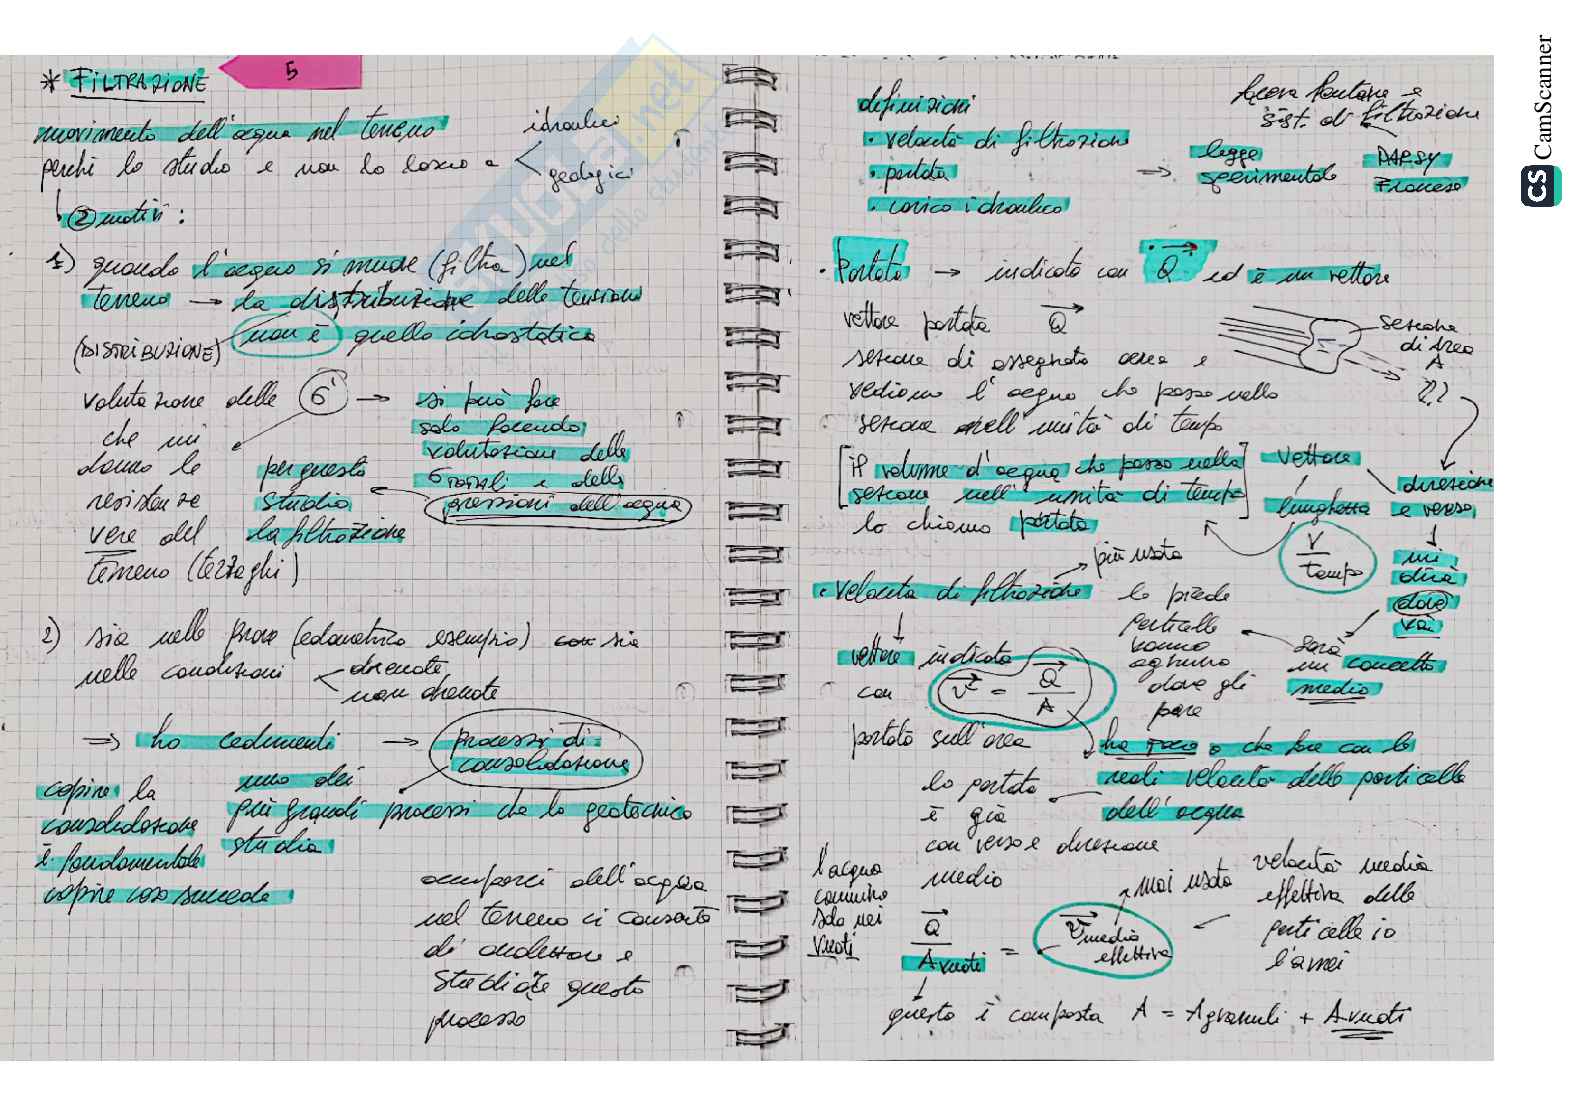 * FILTRAZIONE
5
movimento dell'acqua nel terreno
perché lo studio e non lo lascio a
idraulici
geologici
② motivi:
1) quando l'acqua si muove (filtra) nel
terreno → la distribuzione delle tensioni
(DISTRIBUZIONE) non è quella idrostatica
valutazione delle σ' → si può fare
che mi
danno le
resistenze
vere del
terreno (terzaghi)
solo facendo
valutazione delle
σ totali e delle
pressioni dell'acqua
per questo
studio
la filtrazione
2) sia nelle prove (edometrica esempio) con sia
nelle condizioni
drenate
non drenate
⇒ ho cedimenti → processi di
consolidazione
uno dei
più grandi processi che la geotecnica
studia
capire la
consolidazione
è fondamentale
capire cosa succede
occuparci dell'acqua
nel terreno ci consente
di analizzare e
studiare questo
processo
definizioni
• velocità di filtrazione
• portata
• carico idraulico
⇒ legge
sperimentale
DARSY
Francese
fontane e
sist. di filtrazione
• Portata → indicata con Q ed è un vettore
vettore portata Q
sezione di assegnata area e
vediamo l'acqua che passa nella
sezione nell'unità di tempo
sezione
di area
A
[il volume d'acqua che passa nella
sezione nell'unità di tempo]
lo chiamo portata
vettore
lunghezza
direzione
e verso
V
tempo
mi
dirà
dove
va
sarà
un concetto
medio
• velocità di filtrazione
più usata
le
particelle
vanno
ognuno
dove gli
pare
vettore indicato
con v = Q
A
portata sull'area
ha poco a che fare con la
reali velocità delle particelle
dell'acqua
la portata
è già
con verso e direzione
medio
l'acqua
cammina
solo nei
vuoti
Q
A vuoti
= v media
effettiva
mai usata
velocità media
effettiva delle
particelle io
questo è composta A = A granuli + A vuoti
CS CamScanner
SKUOLA.net